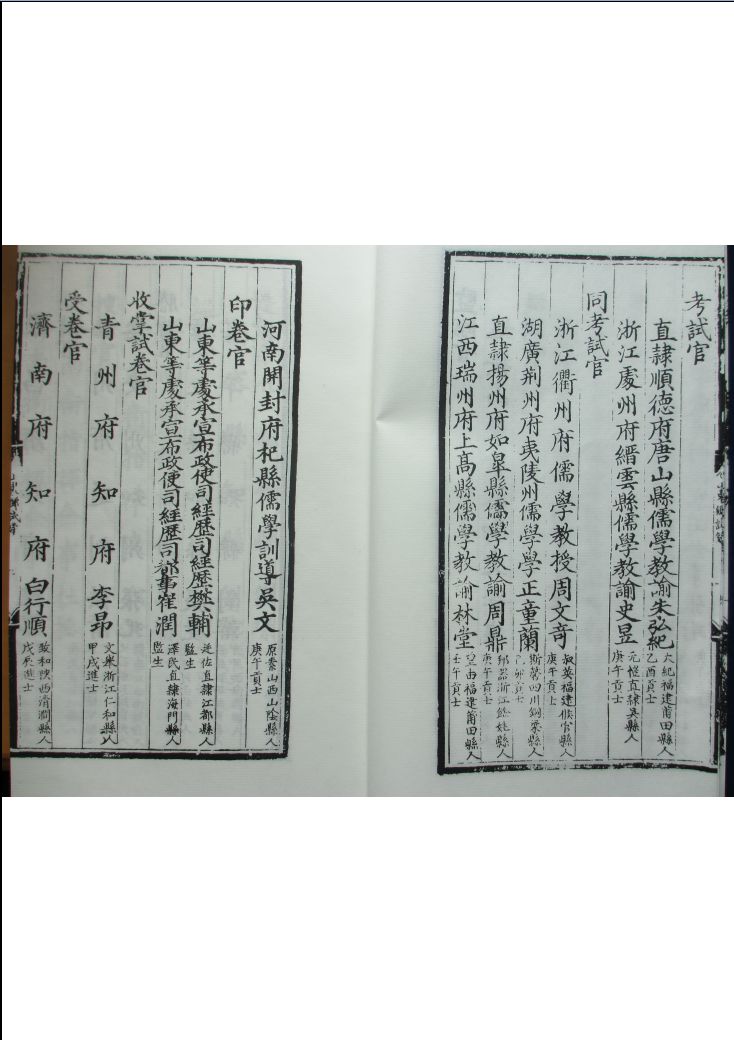 考試官
直隸順德府唐山縣儒學教諭朱弘紀
大紀福建莆田縣人
乙酉貢士
浙江處州府縉雲縣儒學教諭史昱
直隸吳縣人
庚午貢士
同考試官
浙江衢州府儒學教授周文竒
叔英福建侯官縣人
庚午貢士
湖廣荆州府夷陵州儒學學正童蘭
斯馨四川銅梁縣人
卯貢士
直隸揚州府如臯縣儒學教諭周鼎
浙江餘姚縣人
庚午貢士
江西瑞州府上髙縣儒學教諭林堂
福建莆田縣人
壬午貢士
河南開封府杞縣儒學訓導吳文
原素山西山陰縣人
庚午貢士
印卷官
山東等處承宣布政使司經歷司經歷樊輔
廷佐直隸江都縣人
監生
山東等處承宣布政使司經歷司都事崔潤
澤民直隸海門縣人
監生
收掌試卷官
青州府知府李昂
文舉浙江仁和縣人
甲戌進士
受卷官
濟南府知府白行順
致和陝西清澗縣人
戊辰進士